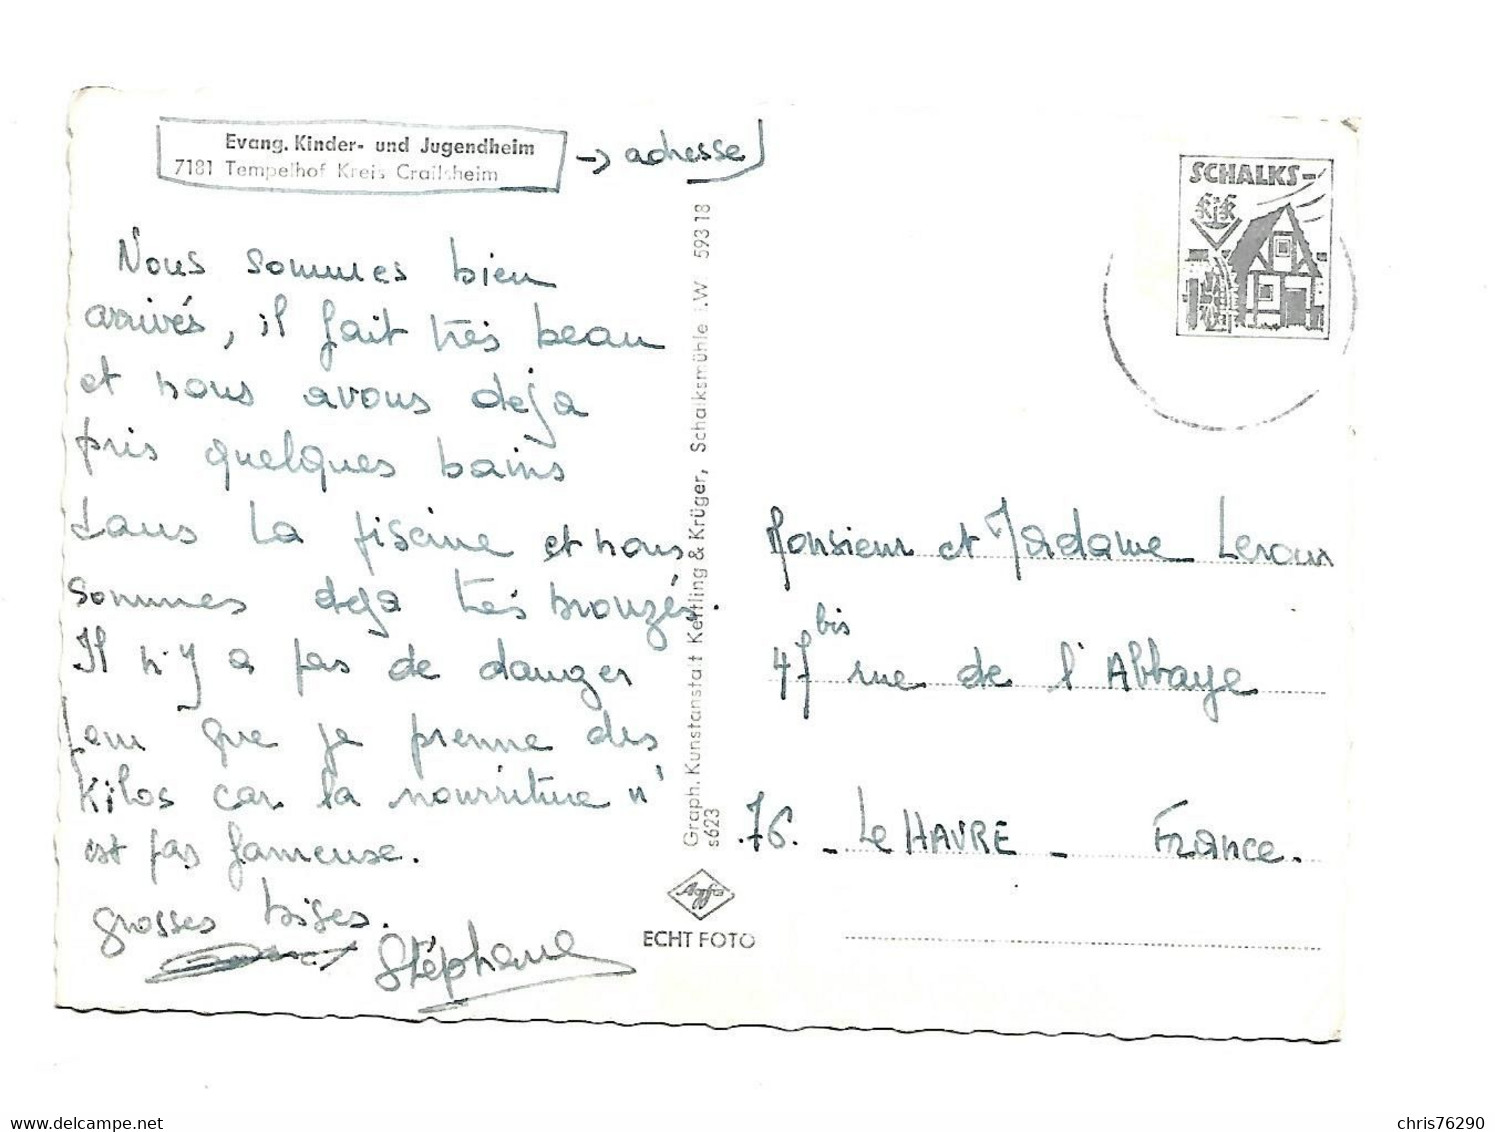 Evang. Kinder- und Jugendheim
7181 Tempelhof Kreis Crailsheim
→ adresse
Nous sommes bien
arrivés, il fait très beau
et nous avons déjà
pris quelques bains
dans la piscine et nous
sommes deja très bronzés.
Il n'y a pas de danger
pour que je prenne des
Kilos car la nourriture n'
est pas fameuse.
grosses bises.
Stéphane
Graph. Kunstanstalt Kettling & Krüger, Schalksmühle i.W. 593 18
s623
Agfa
ECHT FOTO
SCHALKS-
KiK
Monsieur et Madame Leroux
47 bis rue de l'Abbaye
76. - Le HAVRE - France.
delcampe.net
chris76290